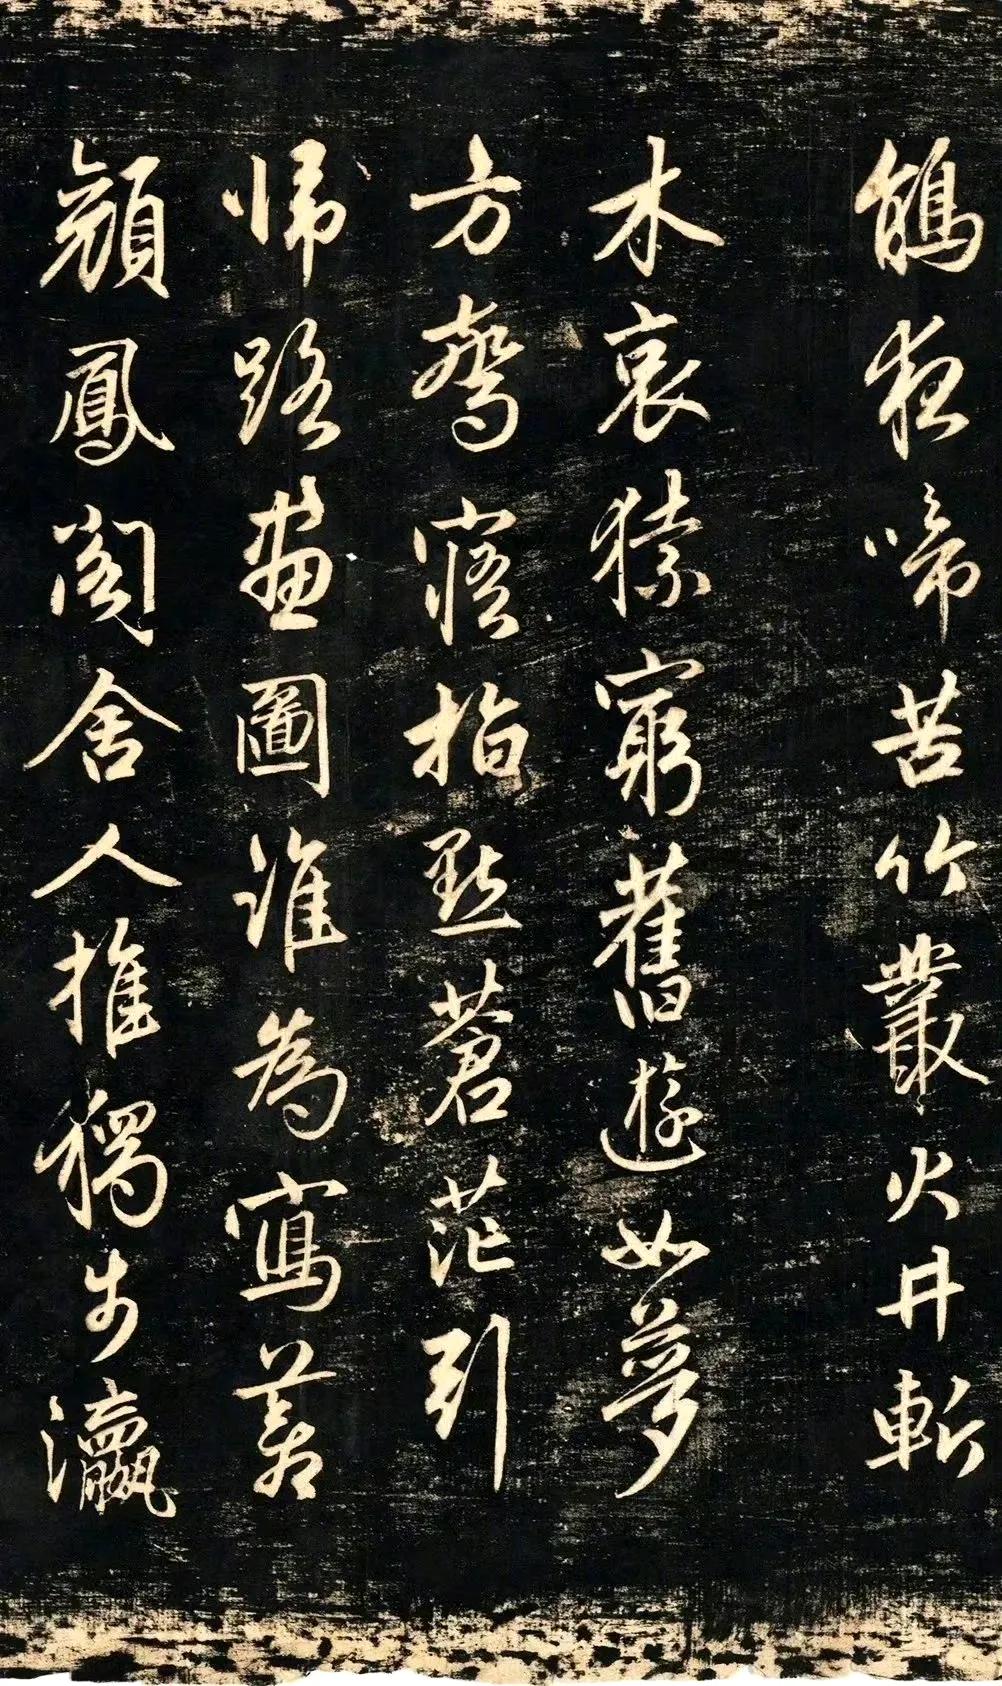 鵑夜啼苦竹叢火井斬
木哀猿窮舊遊如夢
方驚寤指點蒼茫引
歸路畫圖誰為寫蒼
顏鳳閣舍人推獨步瀛